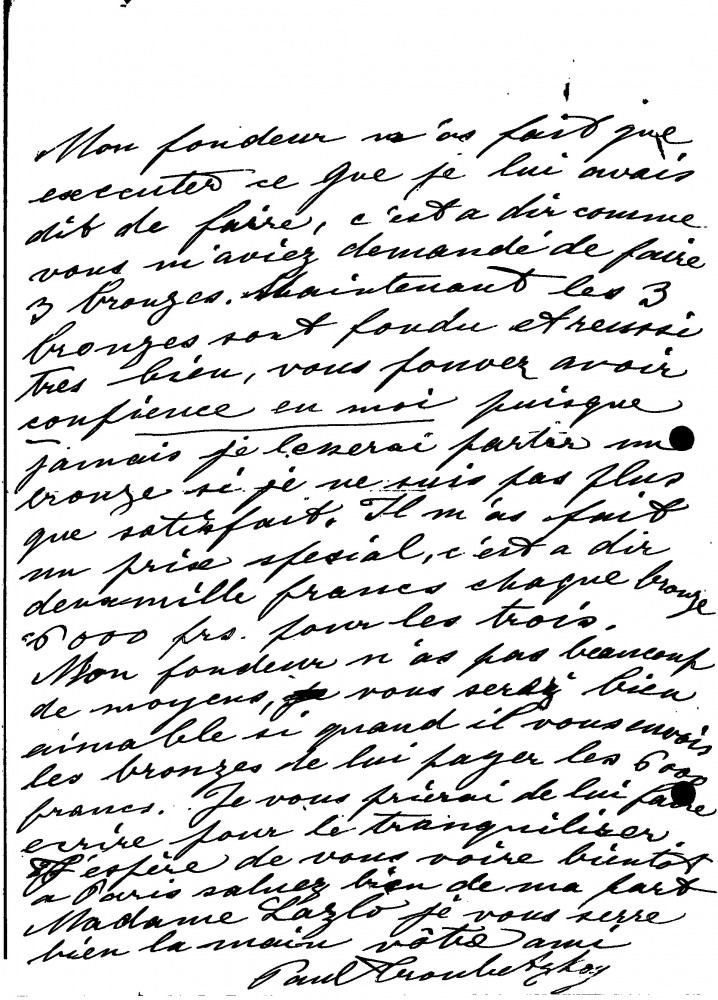 Mon fondeur n'as fait que
executer ce que je lui avais
dit de faire, c'est a dir comme
vous m'aviez demandé de faire
3 bronzes. Maintenant les 3
bronzes sont fondu et reussi
tres bien, vous pouvez avoir
confience en moi puisque
jamais je lesserai partir un
bronze si je ne suis pas plus
que satisfait. Il m'as fait
un prix spesial, c'est a dir
deux mille francs chaque bronze
6000 frs. pour les trois.
Mon fondeur n'as pas beaucoup
de moyens, vous serez bien
aimable si quand il vous envois
les bronzes de lui payer les 6000
francs. Je vous prierai de lui faire
ecrire pour le tranquiliser
J'espère de vous voire bientôt
a Paris saluez bien de ma part
Madame Lazlo je vous serre
bien la main vôtre ami
Paul Troubetzkoy